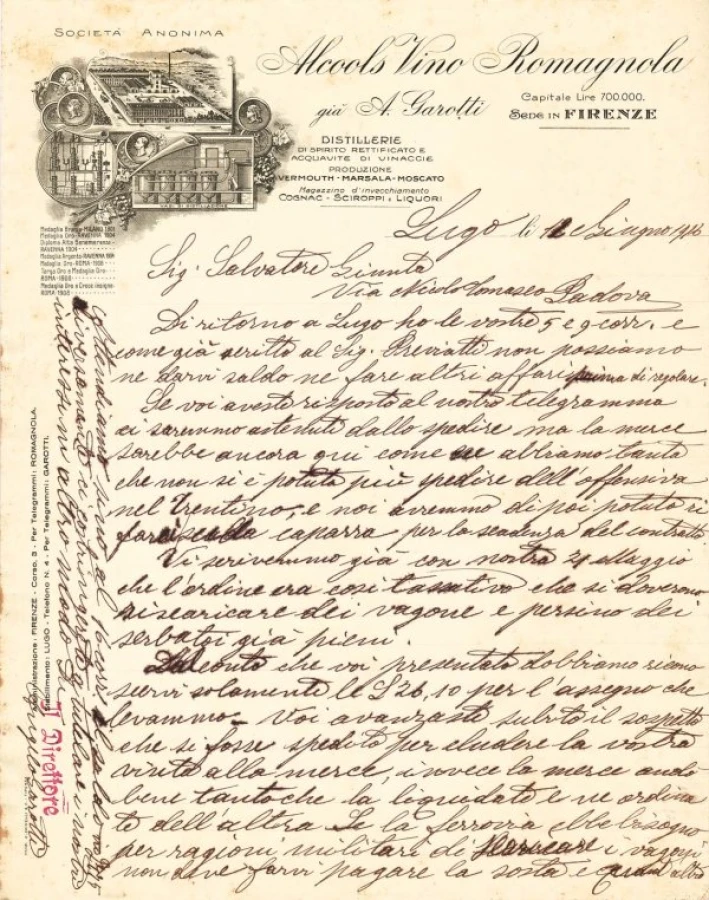 SOCIETÀ ANONIMA
Alcools Vino Romagnola
già A. Garotti
Capitale Lire 700.000.
SEDE IN FIRENZE
DISTILLERIE
DI SPIRITO RETTIFICATO E
ACQUAVITE DI VINACCIE
PRODUZIONE
VERMOUTH - MARSALA - MOSCATO
Magazzino d'invecchiamento
COGNAC - SCIROPPI e LIQUORI
VASI DI DISTILLAZIONE
Medaglia Bronzo - MILANO 1901
Medaglia Oro - RAVENNA 1904
Diploma Alta Benemerenza -
RAVENNA 1904
Medaglia Argento - RAVENNA
Medaglia Oro - ROMA
Targa Oro e Medaglia Oro -
ROMA
Medaglia Oro e Croce insigne -
ROMA
Lugo li 12 Giugno
Sig. Salvatore
Via Nicolo Tomaseo Padova
Di ritorno a Lugo ho le vostre 5 e 9 corr. e
come già scritto al Sig. Previatti non possiamo
ne darvi saldo ne fare altri affari prima di regolare.
Se voi aveste risposto al nostro telegramma
ci saremmo astenuti dallo spedire ma la merce
sarebbe ancora qui come ne abbiamo tanta
che non si è potuta più spedire dell'offensiva
nel Trentino, e noi avremmo di poi potuto ri
caparra per la scadenza del contratto
Vi scrivemmo già con nostra 21 Maggio
che l'ordine era così tassativo che si doverono
riscaricare dei vagone e persino dei
serbatoi già pieni.
conto che voi presentate dobbiamo ricono
scervi solamente le £ 26,10 per l'assegno che
levammo - Voi avanzaste subito il sospetto
che si fosse spedito per eludere la vostra
visita alla merce, invece la merce andò
bene tanto che la liquidate e ne ordina
te dell'altra. Se la ferrovia ebbe bisogno
per ragioni militari di i vagoni
non deve farvi pagare la sosta e
Attendiamo sino al 16 corr. il saldo
diversamente ci costringerete a tutelare i nostri
interessi in altro modo
Amministrazione: FIRENZE - Corso, 3 - Per Telegrammi: ROMAGNOLA.
Stabilimento: LUGO - Telefono N. 4 - Per Telegrammi: GAROTTI.
Il Direttore
Garotti